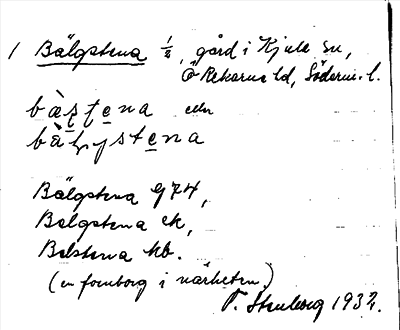 1 Bälgstena ½, gård i Kjula sn,
Ö Rekarne hd, Söderm. l.
bæ̀ʂtena eller
bæ̀ļystena
Bälgstena G 74,
Belgstena ek,
Belstena kb.
(en fornborg i närheten)
T. Stenberg 1932.